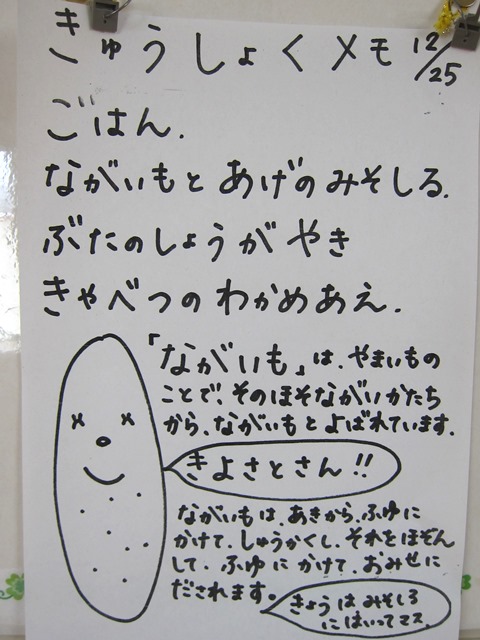 きゅうしょくメモ 12/25
ごはん.
ながいもと あげの みそしる.
ぶたのしょうが やき
きゃべつの わかめあえ.
「ながいも」は、やまいもの
ことで、そのほそながいかたち
から、ながいもと よばれています.
きよさとさん!!
ながいもは、あきから、ふゆに
かけて、しゅうかくし、それをほぞん
して、ふゆに かけて、おみせに
だされます。
きょうは みそしる
にはいってマス.